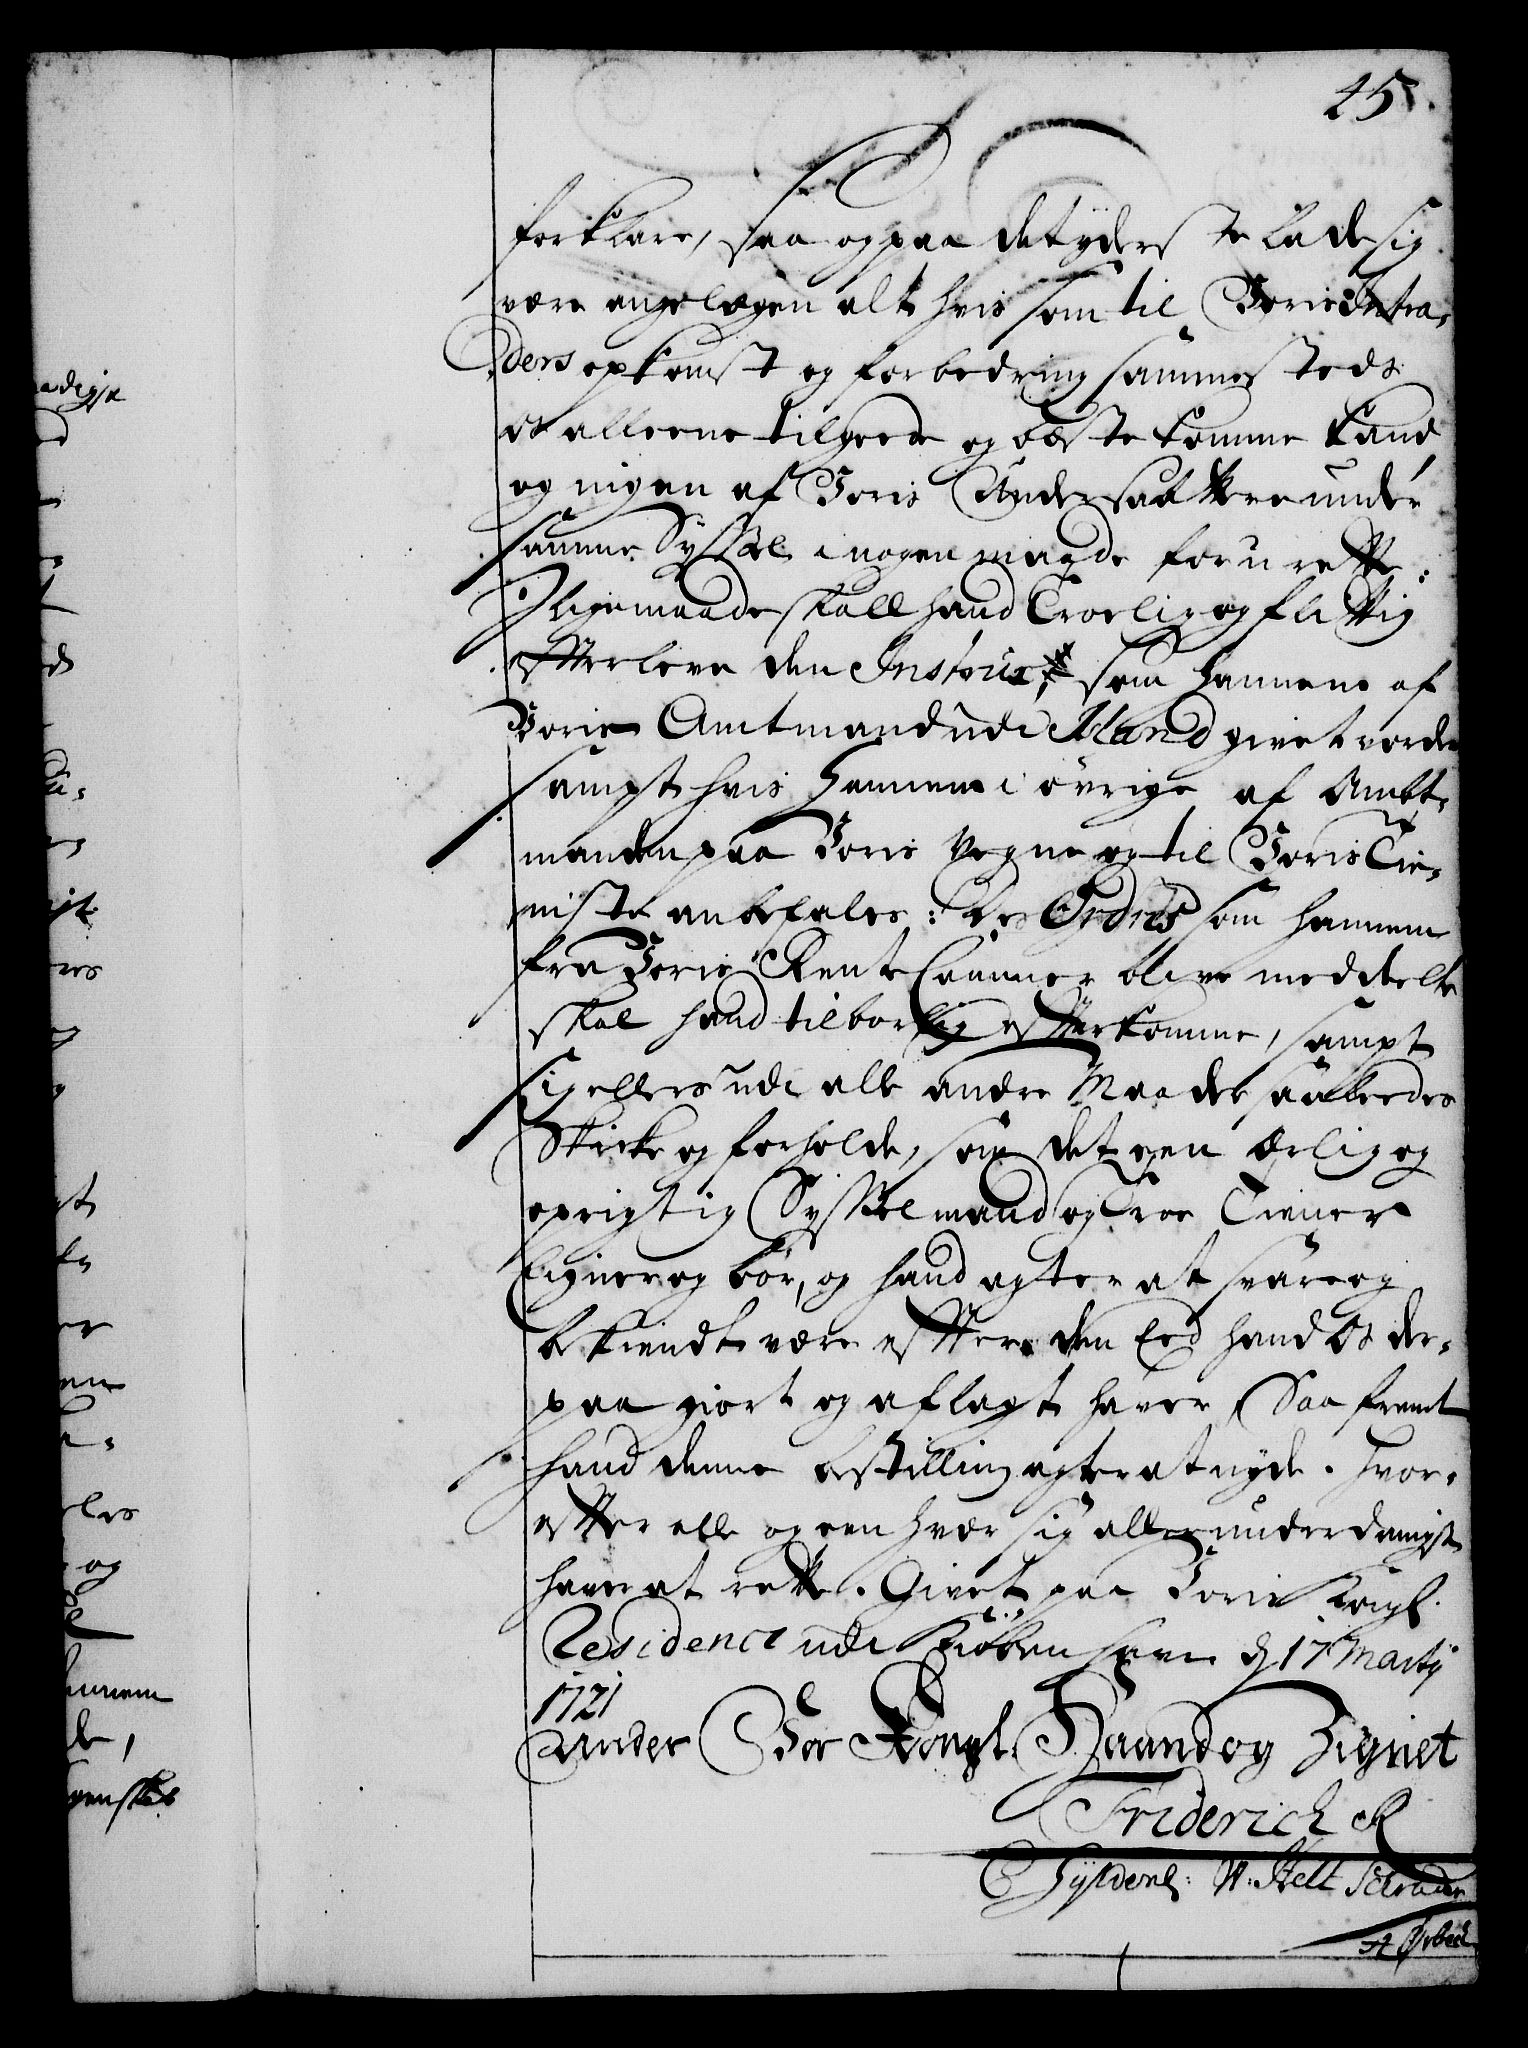 45.
forklare, saa og paa det yderste lade sig
være angelegen alt hvis som til Voris Intra-
ders opkomst og forbedring sammesteds
os allerne til goede og beste komme kand
og ingen af Voris Undersaattere under
samme Syssel i nogen maade forurette:
I ligemaade skall hand Troelig og flittig
efterleve den Instrux, som hannem af
Voris Amtmand udi Island givet vorder
sampt hvis hannem i øvrige af Ambt-
manden paa Voris Vegne og til Voris Tie-
niste anbefales: Des Ordres som hannem
fra Voris Rente Cammer blive meddeelte
skal hand tilbørlig efterkomme, sampt
sig ellers udi alle andre Maader saaleedes
Skicke og forholde, som det een ærlig og
oprigtig Sysselmand og Troe Tiener
Eigner og bør, og hand agter at svare og
bekiendt være efter den Eed hand Os der-
paa giort og aflagt haver, Saa fremt
hand denne bestilling agter at nyde. Hvor-
efter alle og een hver sig allerunderdanigst
haver at rette. Givet paa Voris Kongl.
Residence udi Kiøbenhavn d 17 Martij
1721
Under Vor Kongl. Haand og Zignet
Friderich R
C Gyldenl: W: Helt Schrader